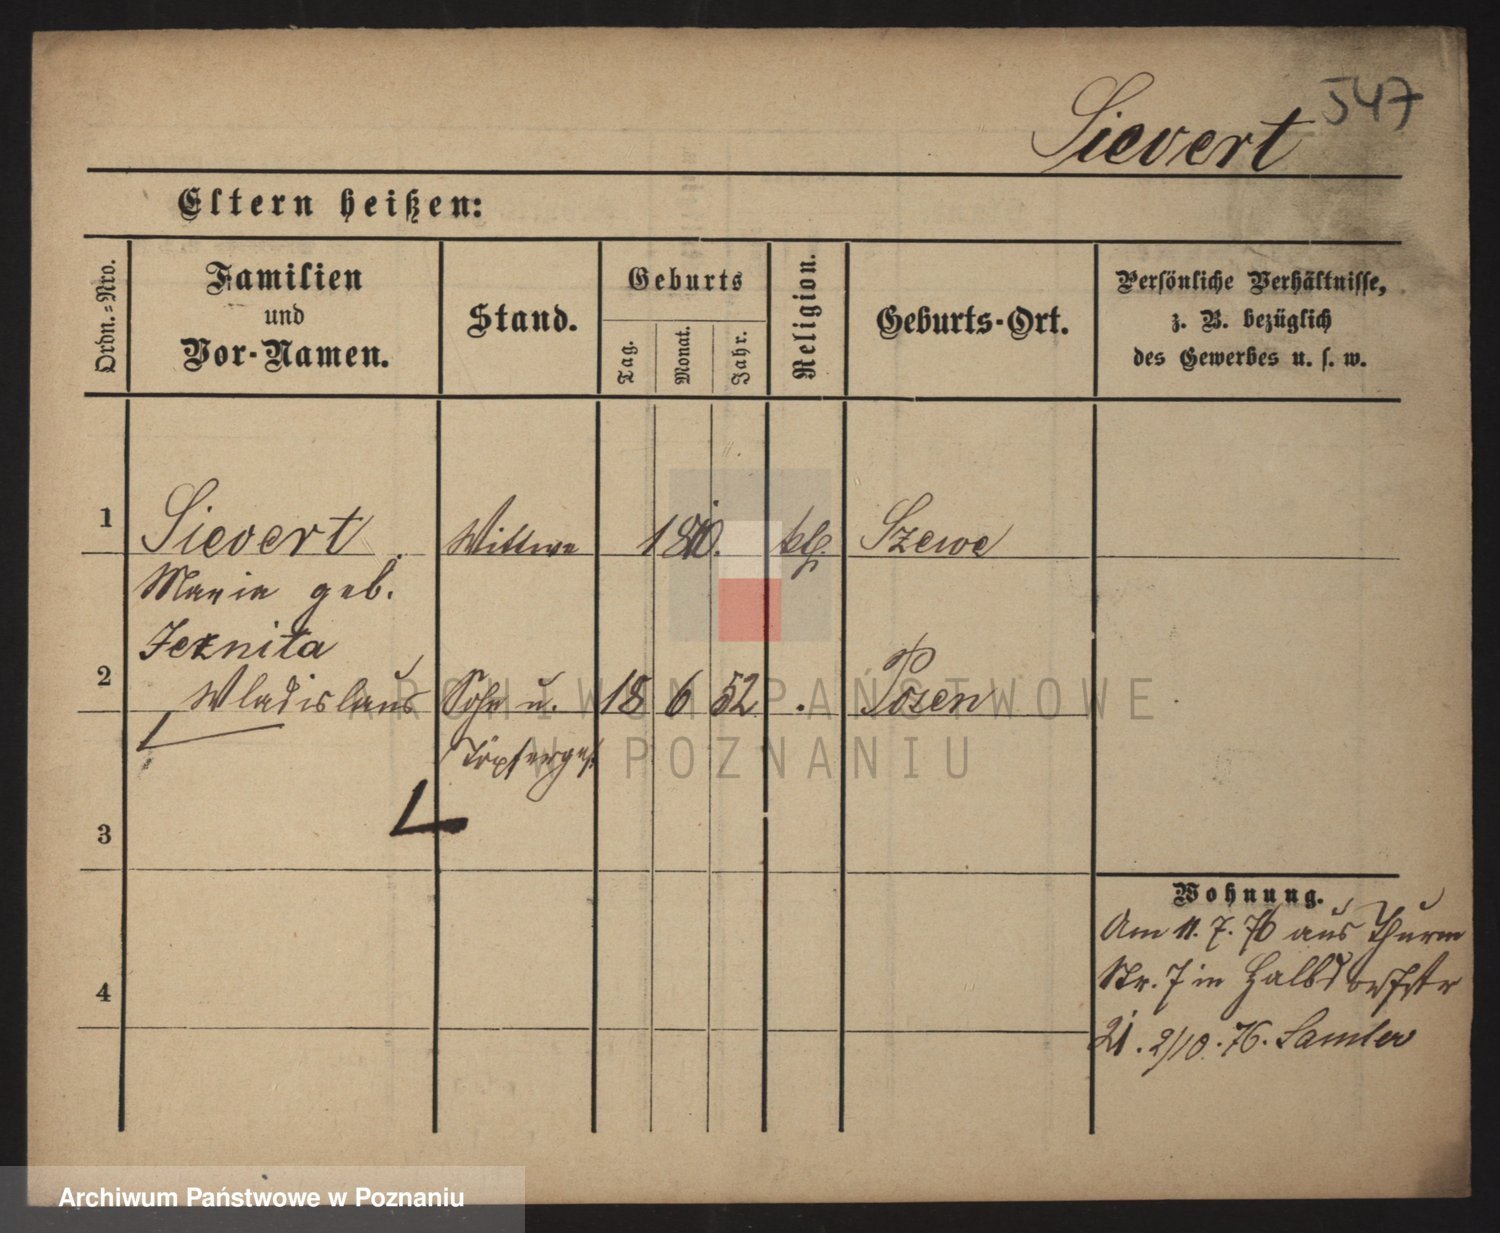 547
Sievert
Eltern heißen:
Ordn.-Nro.
Familien
und
Vor-Namen.
Stand.
Geburts
Tag.
Monat.
Jahr.
Religion.
Geburts-Ort.
Persönliche Verhältnisse,
z. B. bezüglich
des Gewerbes u. s. w.
1
Sievert
Wittwe
ktl.
Szewe
Maria geb.
Jeznita
2
Wladislaus
Sohn u.
18
6
52
Posen
Töpferges.
3
Wohnung.
Am 11. 7. 76 aus Thurm
Str. 7 in Halbdorfstr
21. 2/10. 76.
4
ARCHIWUM PAŃSTWOWE
W POZNANIU
Archiwum Państwowe w Poznaniu